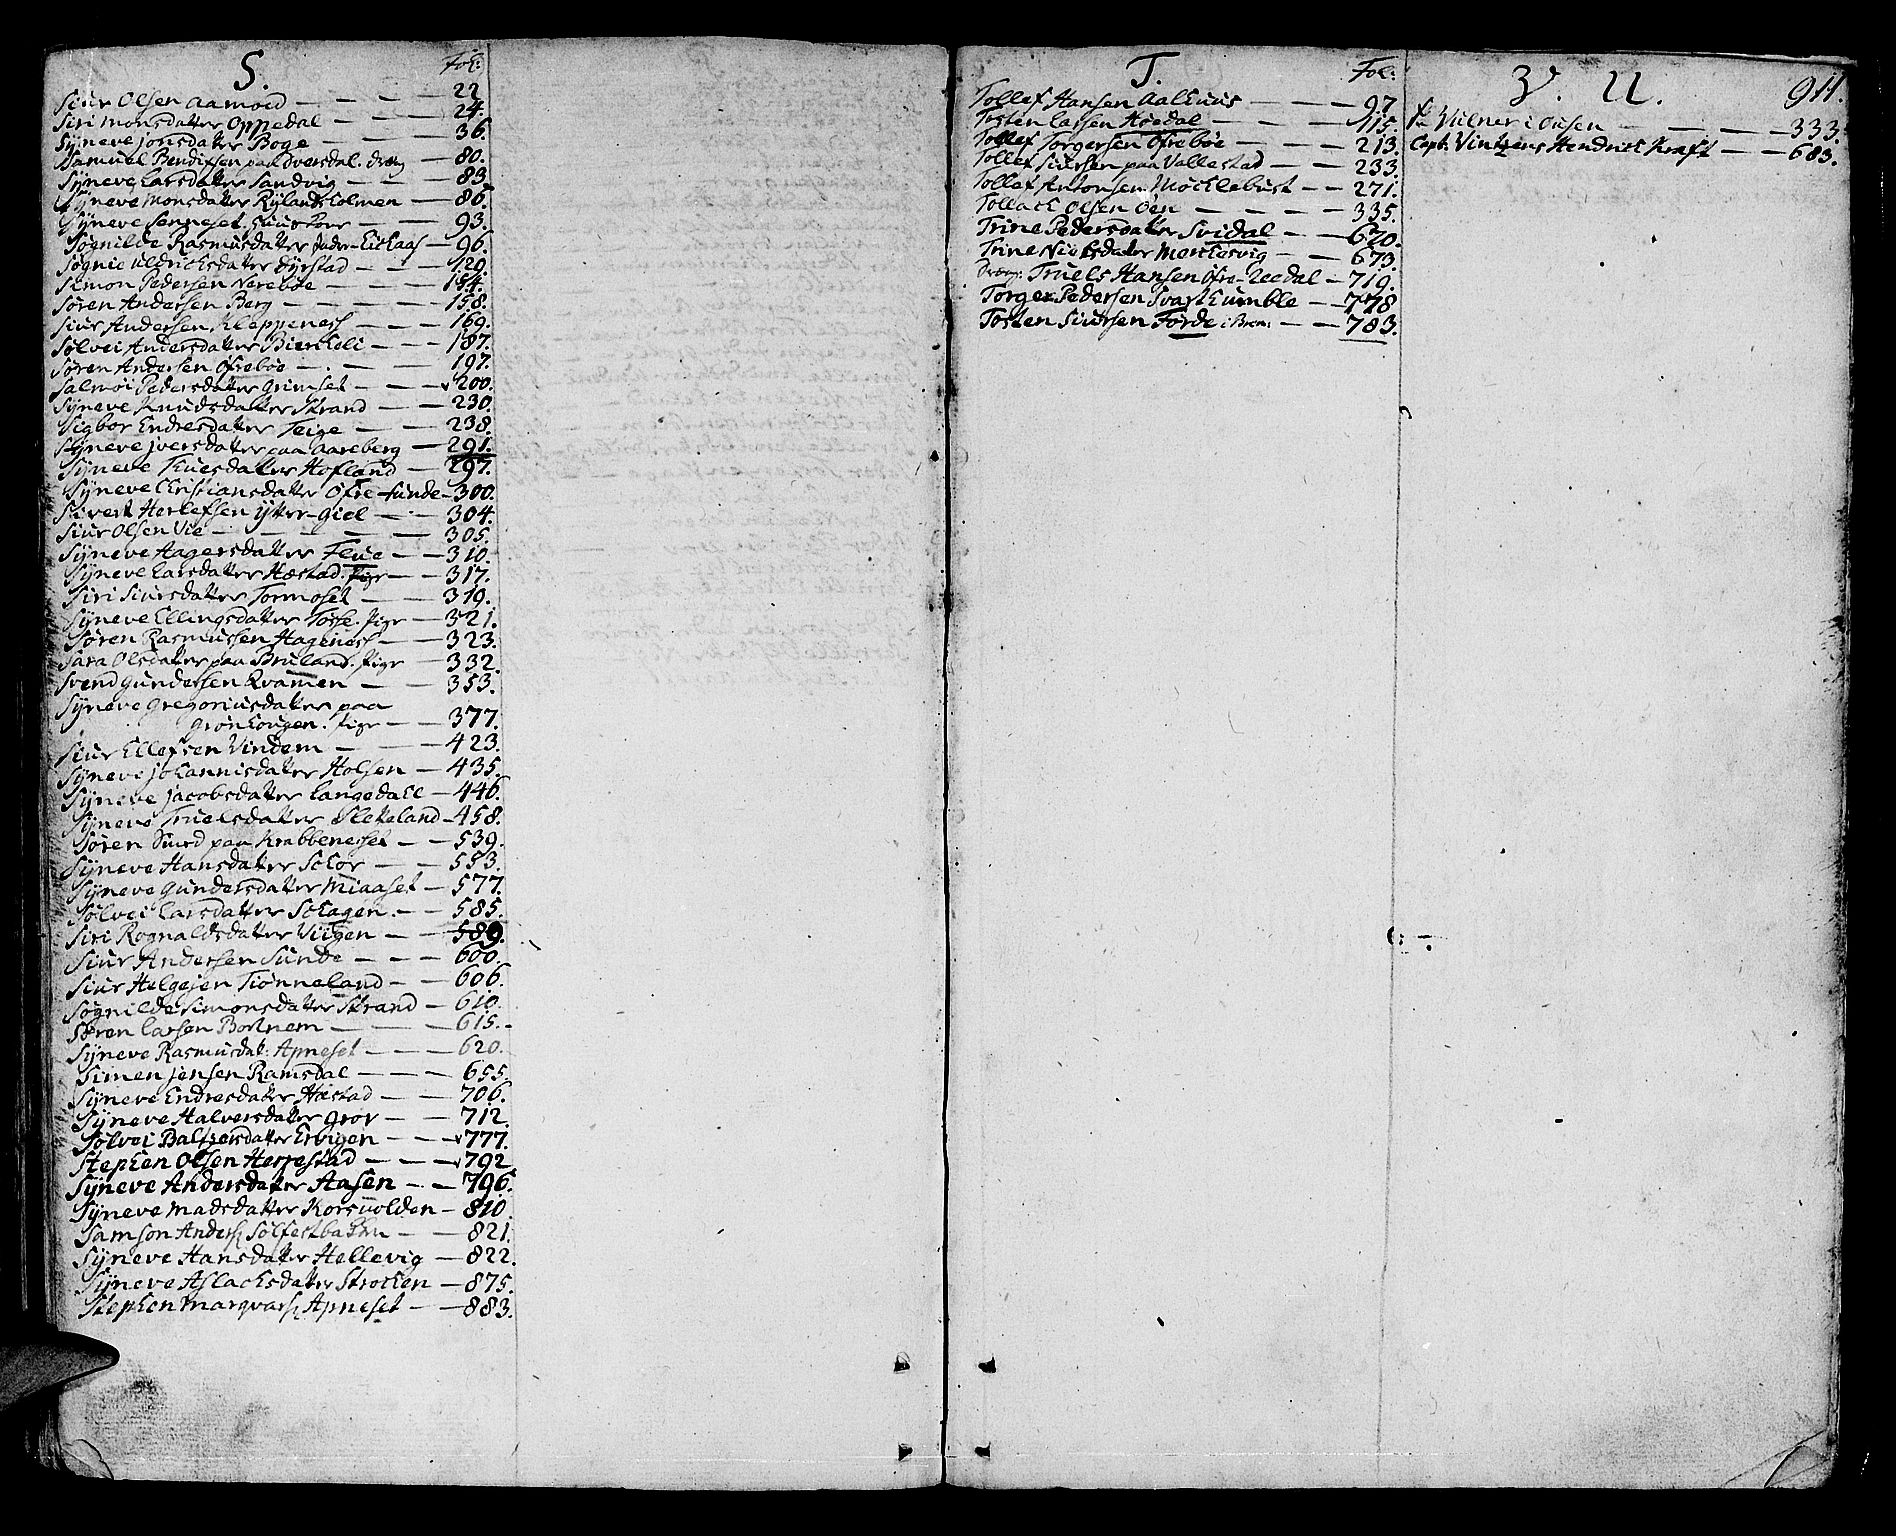 S. Fol:
Siur Olsen Aamoed — — — 22
Siri Monsdatter Oppedal — — 24.
Syneve Jonsdatter Boge — — 36.
Samuel Bendixsen paa Dversdal. dreng 80.
Syneve Larsdatter Sandvig — — 83
Syneve Monsdatter Rylandsholmen — 86.
Syneve Senneset. — 93.
Søgnilde Rasmusdatter Indre-Eichaas — 96.
Søgnie Uldrichsdatter Dyrstad — — 129.
Simon Pedersen Nerebøe — — 154.
Søren Andersen Berg — — — 158.
Siur Andersen Kleppeness — — — 169.
Sølvei Andersdatter Bierkeli — — 187.
Søren Andersen Ofrebøe — . — — 197.
Salmoi Pedersdatter Grimset — — 200.
Syneve Knudsdatter Strand — — 230.
Sigbor Endresdatter Teige — — 238.
Syneve Iversdatter paa Aareberg — 291.
Syneve Tuesdatter Hofland — 297.
Syneve Christiansdatter Ofre-Sunde — 300.
Sivert Herlefsen Ytter-Giel — . — 304.
Siur Olsen Vie — — — — — 305.
Syneve Aagersdatter Flue — — 310.
Syneve Larsdatter Hæstad. Pige — — 317.
Siri Siursdatter Tormoset — — 319.
Syneve Ellingsdatter Tosse. Pige — 321.
Søren Rasmussen Hageness — — 323.
Sara Olsdatter paa Bruland. Pige — 332.
Svend Gundersen Kvamen — — 353.
Syneve Gregoriusdatter paa
Grønhougen. Pige — — 377.
Siur Ellefsen Vindem — — — 423.
Syneve Johannisdatter Holsen — 435.
Syneve Jacobsdatter Langedall — 446.
Syneve Truelsdatter Sletteland — 458.
Søren Siurd paa Krabbenesset — — 539.
Syneve Hansdatter Schor — — 553.
Syneve Gundersdatter Miaaset — 577.
Sølvei Larsdatter Schagen. — — 585.
Siri Rognaldsdatter Viigen — — 589.
Siur Andersen Sunde — — — 600.
Siur Helgesen Tiønneland — — 606.
Søgnilde Simonsdatter Strand — 610.
Søren Larsen Bortnem — — — 615.
Syneve Rasmusdat: Apneset — — — 620.
Simen Jensen Ramsdal — — — 655.
Syneve Endresdatter Hæstad — — 706.
Syneve Halversdatter Grov — — 712.
Sølvei Baltzersdatter Ervigen — — — 777.
Stephen Olsen Herrestad — — — 792
Syneve Andersdatter Aasen — . — 796.
Syneve Madsdatter Korsvolden — 810.
Samson Anders: Solfestbakken — — 821.
Syneve Hansdatter Hellevig — 822.
Syneve Aslachsdatter Strochen — 875.
Stephen Marqvars: Apneset — — 883.
T. Fol:
Tollef Hansen Aalhuus — — — 97.
Tosten Larsen Høedal — — — 115.
Tollef Torgersen Ofrebøe — — — 213.
Tollef Siursen paa Vallestad — — 233.
Tollef Antonsen Mocklebust — — 271.
Tollach Olsen Øen — — — — 335.
Trine Pedersdatter Svidal — — 620.
Trine Nielsdatter Morthesvig — — 673.
Dreng: Truels Hansen Ofre-Aedal — 719.
Torger Pedersen Svarthumble — 778
Tosten Siursen Førde i Brem: — — 783.
V. U. 911.
Vilner i Ousen — — — — 333.
Capt: Vintzens Hendrich Kraft — — 683.